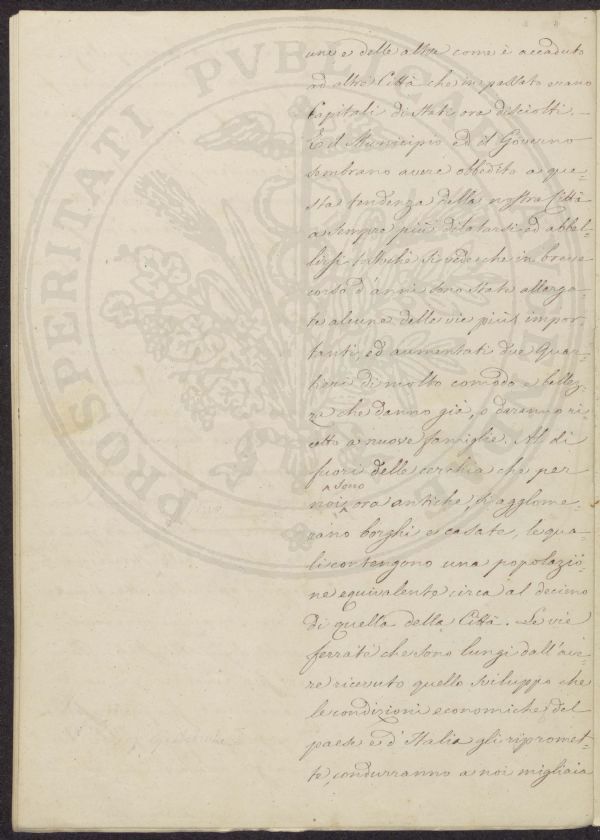 une e delle altre come è accaduto
ad altre Città che in passato erano
Capitali di Stati ora disciolti. —
E il Municipio ed il Governo
sembrano avere obbedito a que=
sta tendenza della nostra Città
a sempre più dilatarsi ed abbel=
lirsi talchè si vede che in breve
corso d'anni sono state allarga=
te alcune delle vie più impor=
tanti, ed aumentati due quar=
tieri di molto comodo e bellez=
za che danno già, o daranno ri=
cetto a nuove famiglie. Al di
fuori delle cerchia che per
sono
noi ora antiche, s'agglome=
rano borghi e casate, le qua=
li contengono una popolazio=
ne equivalente circa al decimo
di quella della Città. Le vie
ferrate che sono lungi dall'ave=
re ricevuto quello sviluppo che
le condizioni economiche del
paese e d'Italia gli ripromet=
te, condurranno a noi migliaia
PROSPERITATI PVBLICAE